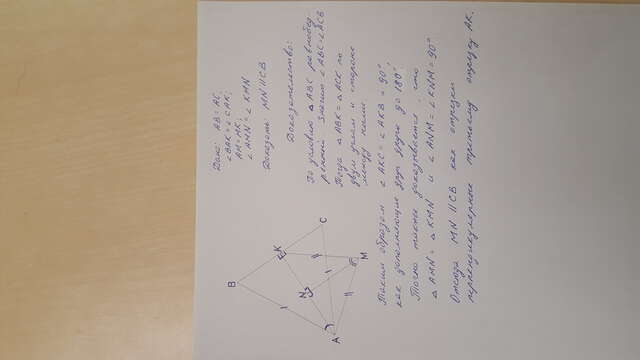 Дано: AB = AC,
∠BAK = ∠CAK;
AM = MK;
∠AMN = ∠KMN
Доказать: MN || CB
Доказательство:
По условию △ABC равнобед
ренный. Значит ∠ABC = ∠ACB
Тогда △ABK = △ACK по
двум углам и стороне
между ними.
Таким образом ∠AKC = ∠AKB = 90°,
как дополняющие друг друга до 180°
Точно также доказывается, что
△AMN = △KMN и ∠ANM = ∠KNM = 90°
Отсюда MN || CB как отрезки
перпендикулярные третьему отрезку AK.
B
K
N
A
C
M